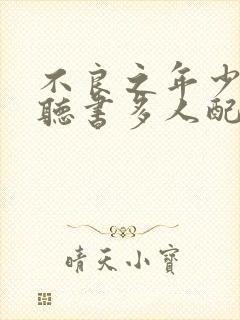 不良之年少
聽書多人配
晴天小寶